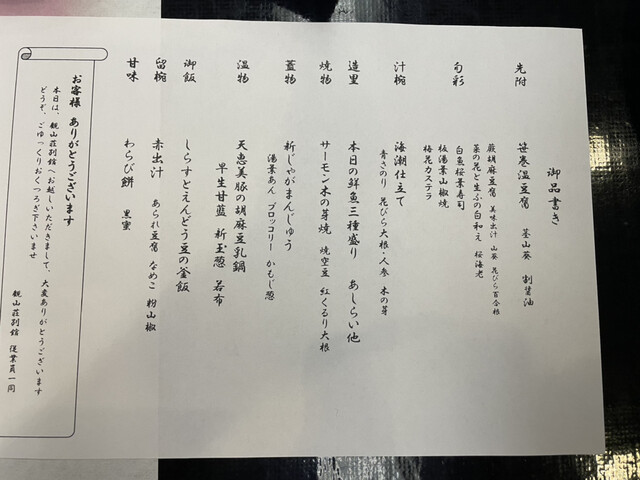 御品書き
先附 笹巻温豆腐 茎山葵 割醤油
旬彩 蕨胡麻豆腐 美味出汁 山葵 花びら百合根
菜の花と生ふの白和え 桜海老
白魚桜葉寿司
板湯葉山椒焼
梅花カステラ
汁椀 海潮仕立て
青さのり 花びら大根・人参 木の芽
造里 本日の鮮魚三種盛り あしらい他
焼物 サーモン木の芽焼 焼空豆 紅くるり大根
蓋物 新じゃがまんじゅう
湯葉あん ブロッコリー かもじ葱
温物 天恵美豚の胡麻豆乳鍋
早生甘藍 新玉葱 若布
御飯 しらすとえんどう豆の釜飯
留椀 赤出汁 あられ豆腐 なめこ 粉山椒
甘味 わらび餅 黒蜜
お客様 ありがとうございます
本日は、観山荘別館へお越しいただきまして、大変ありがとうございます
どうぞ、ごゆっくりおくつろぎ下さいませ
観山荘別館 従業員一同